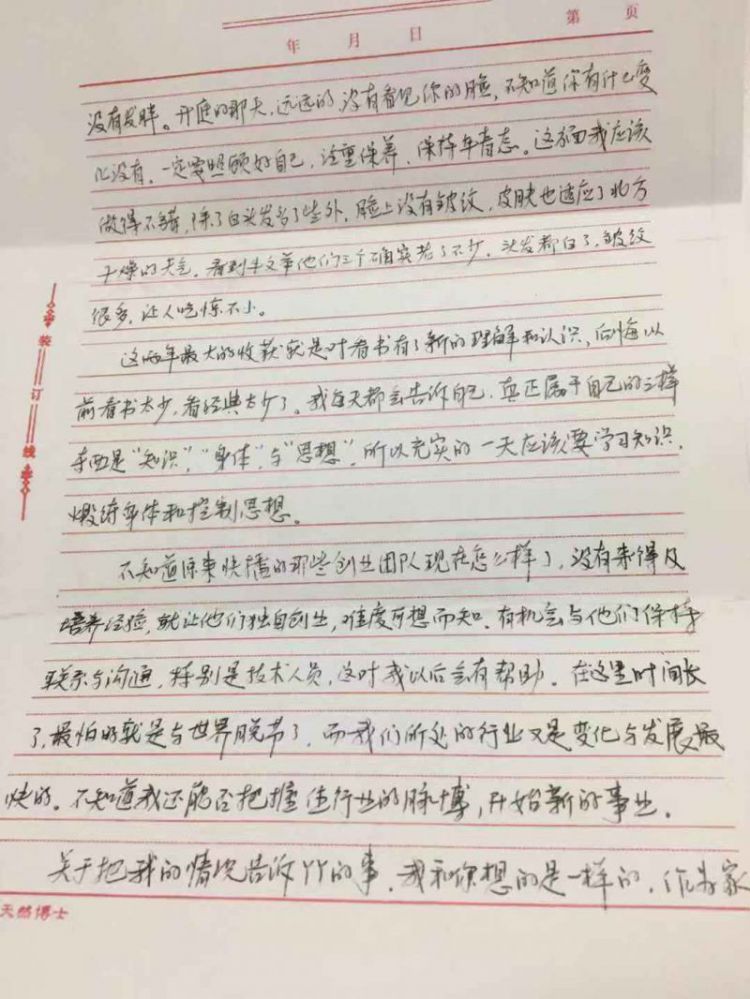 第 页
年 月 日
没有发胖。开庭的那天,远远的,没有看见你的脸,不知道你有什么变
化没有,一定要照顾好自己,注重保养,保持年青态。这方面我应该
做得不错,除了白头发多了些外,脸上没有皱纹,皮肤也适应了北方
干燥的天气,看到牛文举他们三个确实老了不少,头发都白了,皱纹
很多,让人吃惊不小。
这两年最大的收获就是对看书有了新的理解和认识,后悔以
前看书太少,看经典太少了。我每天都会告诉自己,真正属于自己的三样
东西是“知识”,“身体”与“思想”,所以充实的一天应该要学习知识,
煅练身体和控制思想。
不知道原来快播的那些创业团队现在怎么样了,没有来得及
培养经验,就让他们独自创业,难度可想而知,有机会与他们保持
联系与沟通,特别是技术人员,这对我以后会有帮助。在这里时间长
了,最怕的就是与世界脱节了,而我们所处的行业又是变化与发展最
快的。不知道我还能否把握住行业的脉博,开始新的事业。
关于把我的情况告诉丫丫的事,我和你想的是一样的,作为家
装订线
天然博士